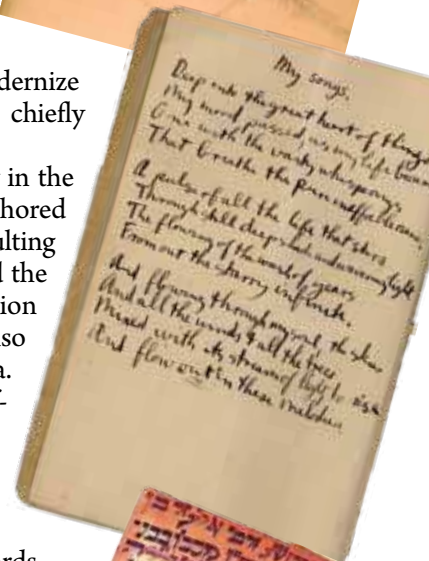 dernize
chiefly
in the
hored
ulting
the
ion
so
a.
rds
My songs.
Deep into the great heart of things
My mood passed, as my life became
One with the windy whisperings
That breathe the pure ineffable name.
A pulse of all the life that stirs
Through still deep shade and wavering light
The flowing of the wash of years
From out the starry infinite.
And flowing through my soul, the skies
And all the winds & all the trees
Mixed with its stream of light to rise
And flow out in these melodies